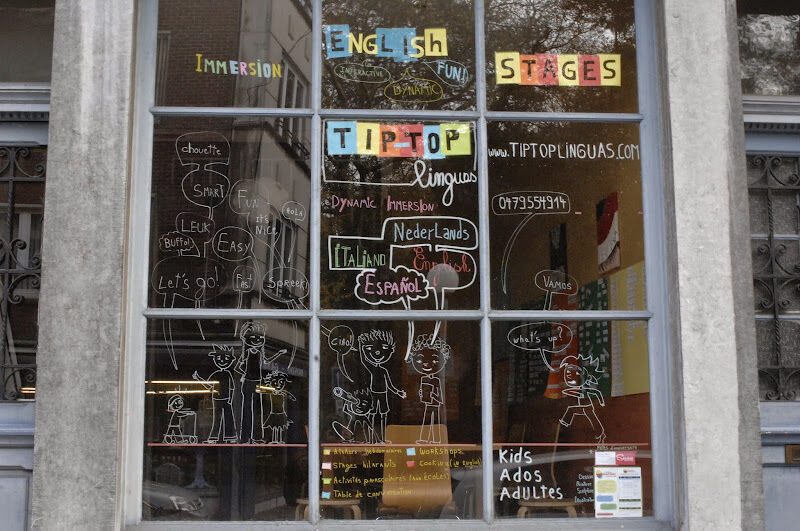 IMMERSION
ENGLISh
INTERACTIVE
FUN!
DYNAMIC
STAGES
TIP-TOP
linguas
DYNAMIC IMMERSION
NEDERLANDS
ITALIANO
English
ESPAÑOL
www.TIPTOPLINGUAS.COM
0479554914
chouette
SMART
FUN
it's
NICE
HOLA
LEUK
Buffo!
EASY
Let's go!
Spreek
VAMOS
CIAO
what's up?
Ateliers hebdomadaires
STAGES hilarants
Activités parascolaires (aux écoles)
TABLE de conversation
WORKSHOPS
COOKING (in English)
Kids
Ados
Adultes